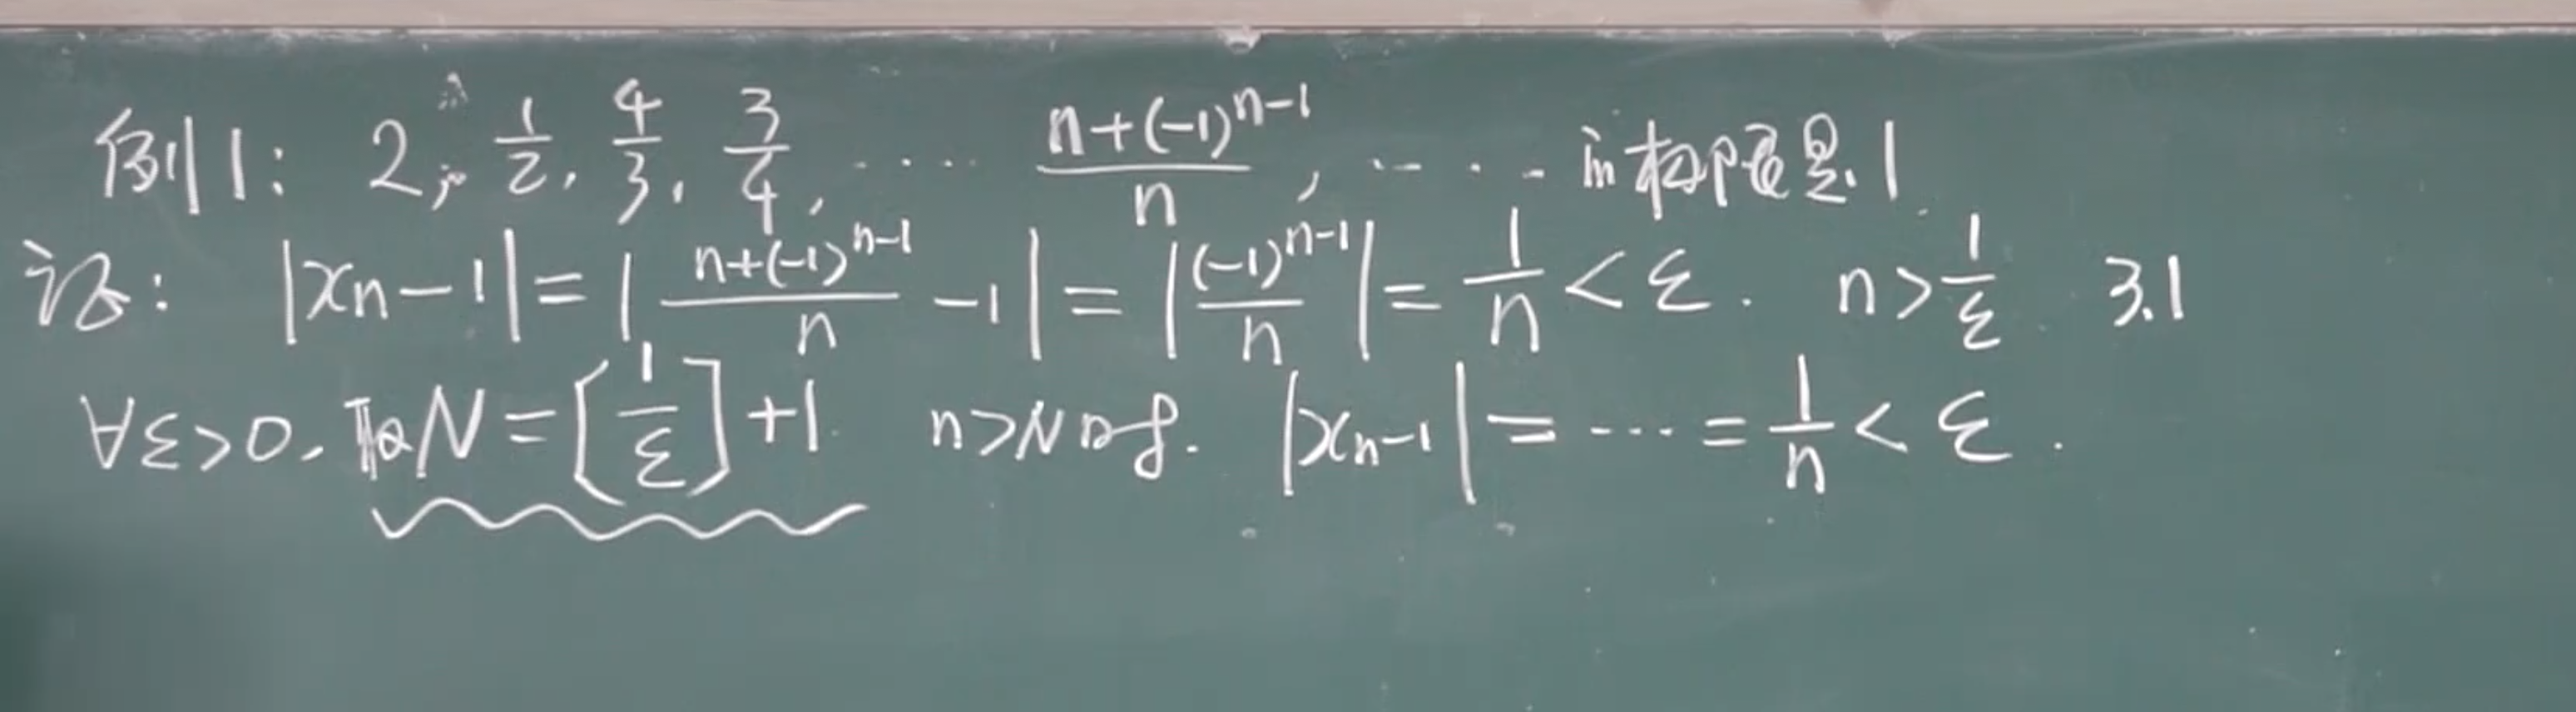 例1: 2, 1/2, 4/3, 3/4, ···· (n+(-1)^(n-1))/n, ···· 的极限是1.
证: |xn-1| = |(n+(-1)^(n-1))/n -1| = |(-1)^(n-1)/n| = 1/n < ε. n>1/ε 3.1
∀ε>0, 取N=[1/ε]+1 n>N时. |xn-1| = ··· = 1/n < ε.